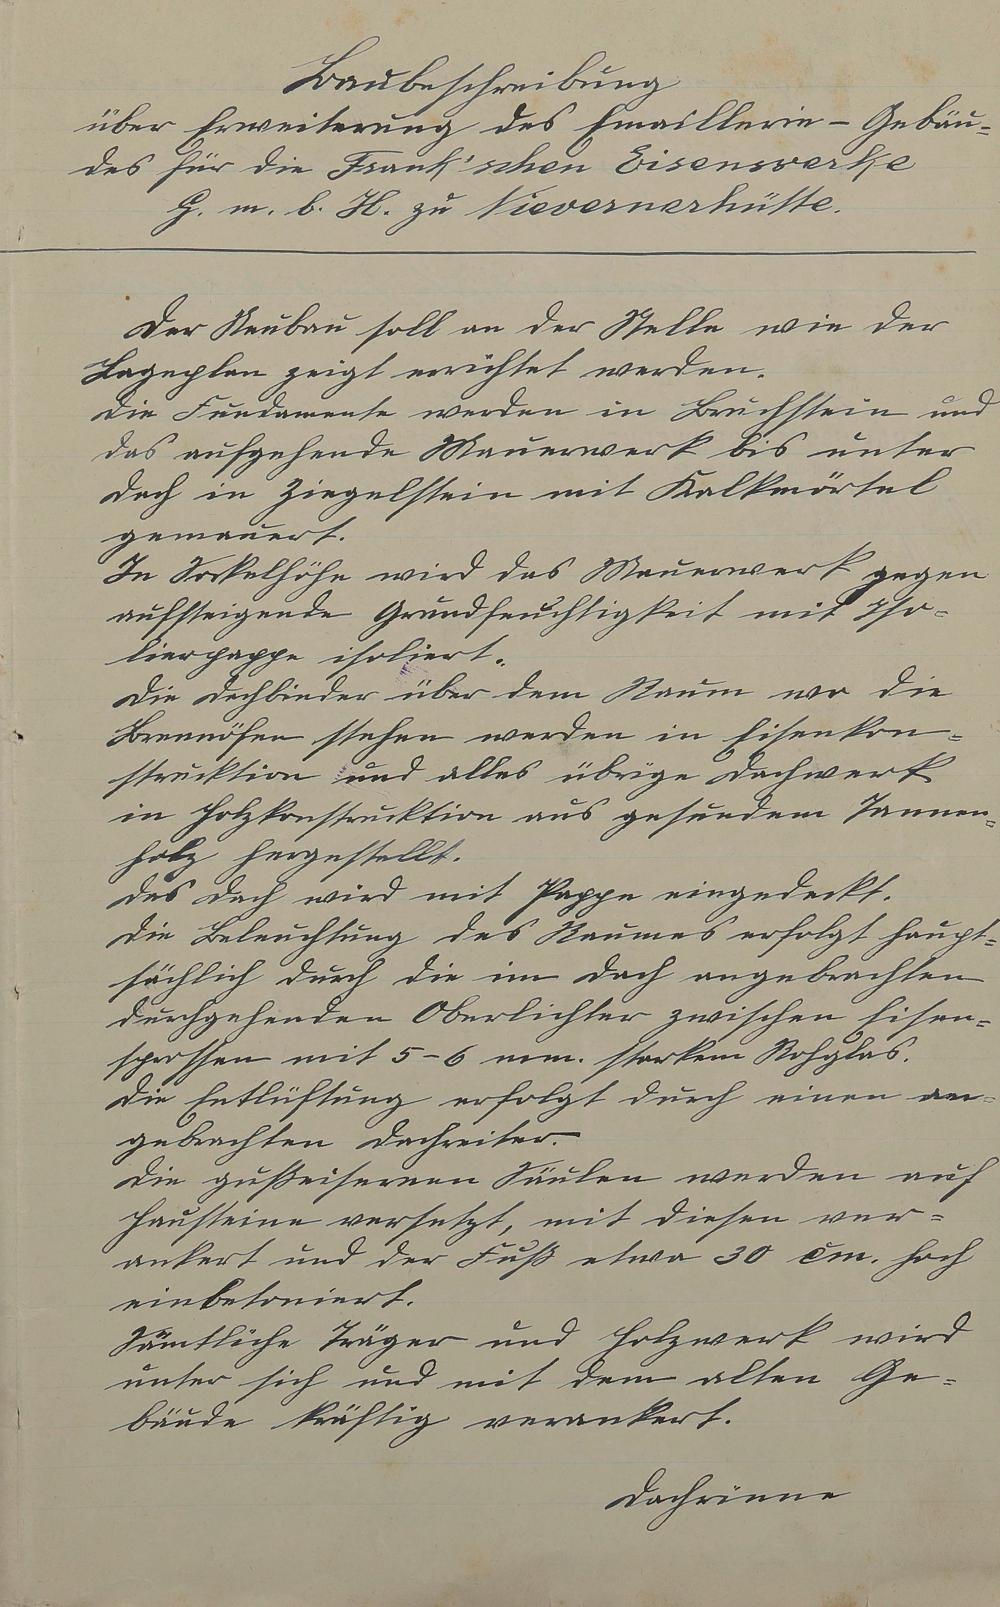 Baubeschreibung
über Erweiterung des Emaillerie- Gebäu-
des für die Frank'schen Eisenswerke
G. m. b. H. zu Nievernerhütte.
Der Neubau soll an der Stelle wie der
Lageplan zeigt errichtet werden.
Die Fundamente werden in Bruchstein und
das aufgehende Mauerwerk bis unter
Dach in Ziegelstein mit Kalkmörtel
gemauert.
In Sockelhöhe wird das Mauerwerk gegen
aufsteigende Grundfeuchtigkeit mit Iso-
lierpappe isoliert.
Die Dachbinder über dem Raum wo die
Brennöfen stehen werden in Eisenkon-
strucktion und alles übrige Dachwerk
in Holzkonstrucktion aus gesundem Tannen-
holz hergestellt.
Das Dach wird mit Pappe eingedeckt.
Die Beleuchtung des Raumes erfolgt haupt-
sächlich durch die im Dach angebrachten
durchgehenden Oberlichter zwischen Eisen-
sprossen mit 5-6 mm. starkem Rohglas.
Die Entlüftung erfolgt durch einen an-
gebrachten Dachreiter.
Die gußeisernen Säulen werden auf
Hausteine versetzt, mit diesen ver-
ankert und der Fuß etwa 30 cm. hoch
einbetoniert.
Sämtliche Träger und Holzwerk wird
unter sich und mit dem alten Ge-
bäude kräftig verankert.
Dachrinne